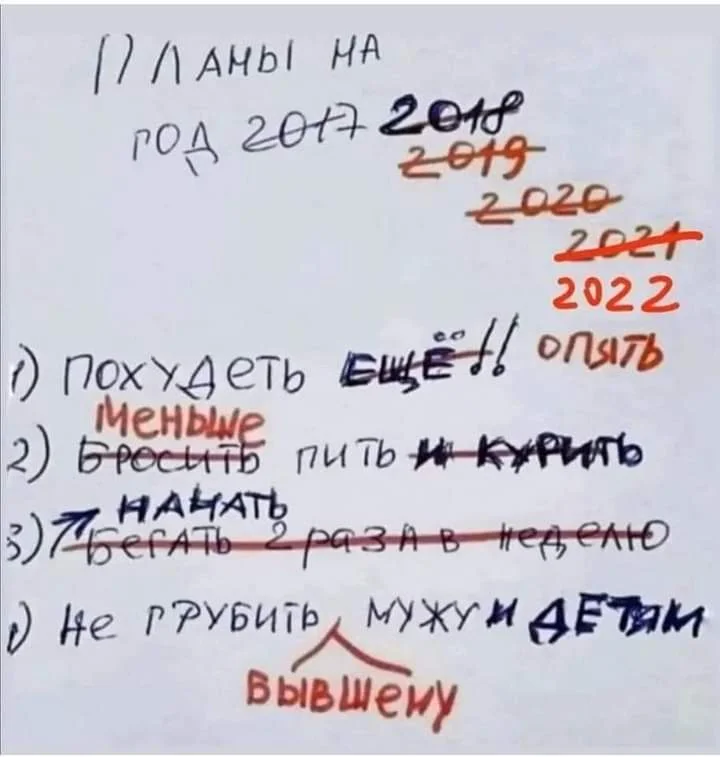 ПЛАНЫ НА
ГОД 2017 2018
2019
2020
2021
2022
1) ПОХУДЕТЬ ЕЩЁ!! ОПЯТЬ
МЕНЬШЕ
2) БРОСИТЬ ПИТЬ И КУРИТЬ
НАЧАТЬ
3) БЕГАТЬ 2 РАЗА В НЕДЕЛЮ
) НЕ ГРУБИТЬ МУЖУ И ДЕТЯМ
БЫВШЕМУ